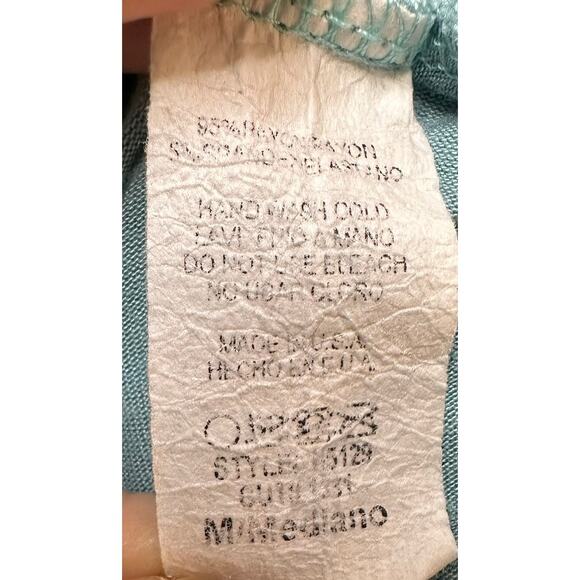 95% RAYON/RAYON
5% SPANDEX/ELASTANO
HAND WASH COLD
LAVESE A MANO
DO NOT USE BLEACH
NO USAR CLORO
MADE IN U.S.A.
HECHO EN E.U.A.
STYLE:
M/Mediano